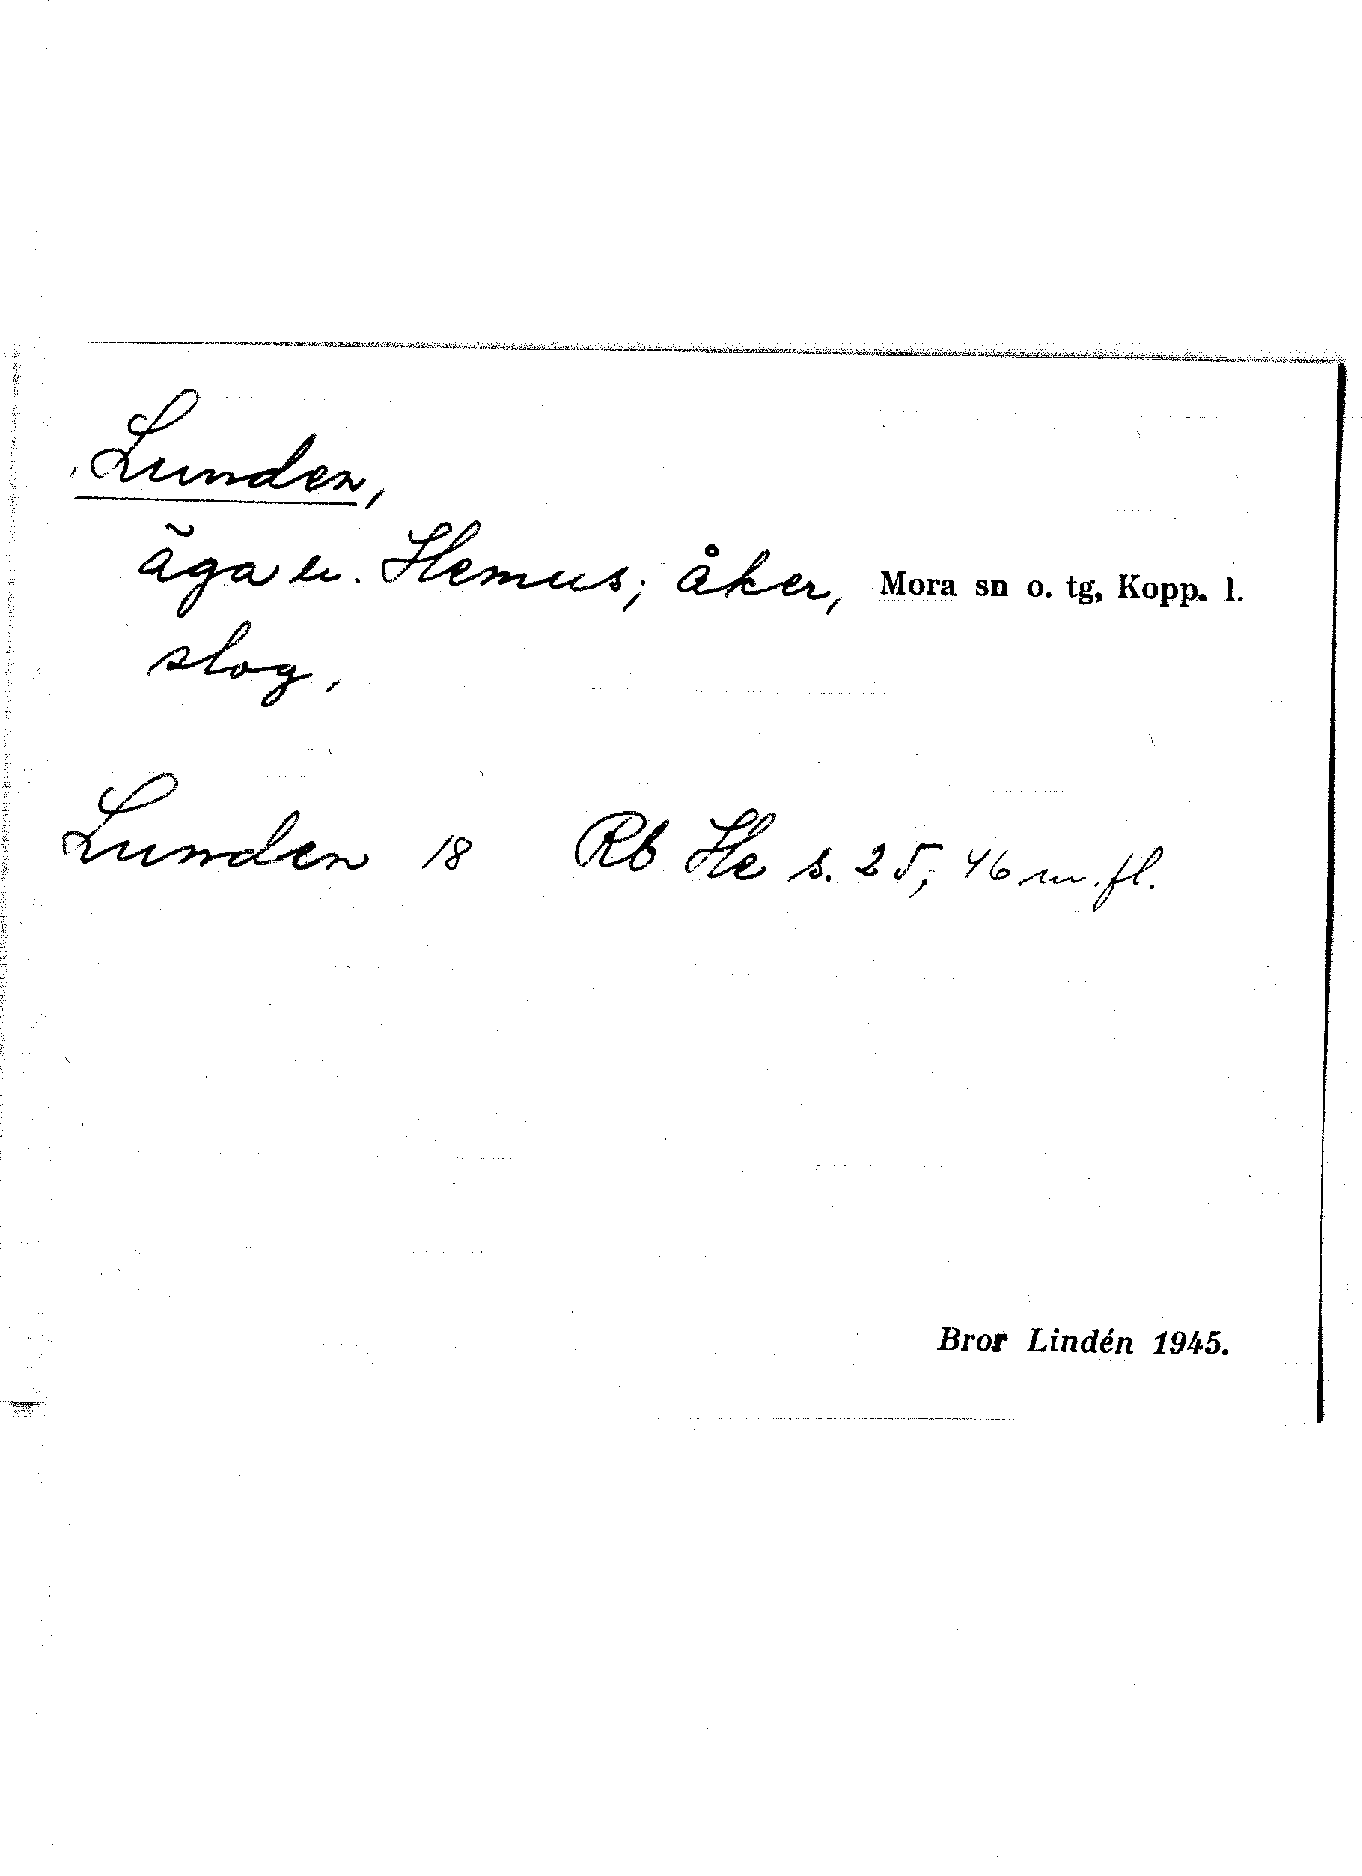 Lunden,
äga u. Hemus; åker, Mora sn o. tg, Kopp. l.
slog,
Lunden 18 Rb He s. 25, 46 m. fl.
Bror Lindén 1945.